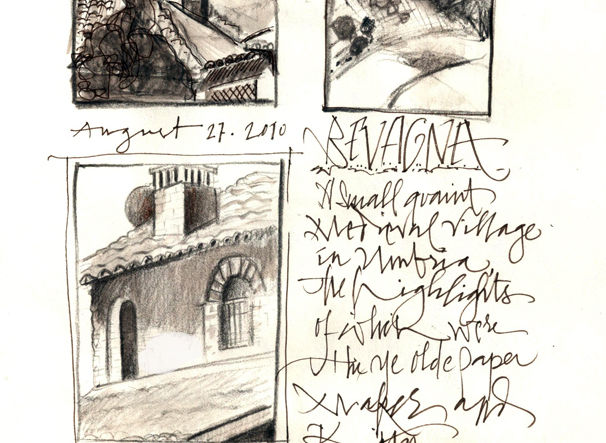 August 27. 2010
BEVAGNA
A small quaint
Medieval Village
in Umbria,
the highlights
of which were
the ye olde paper
and